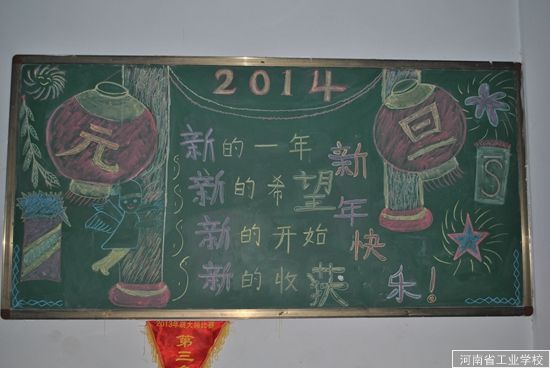 2014
元
旦
新的一年
新的希望
新的开始
新的收获
新年快乐!
S
2013年砚大
第三
河南省工业学校